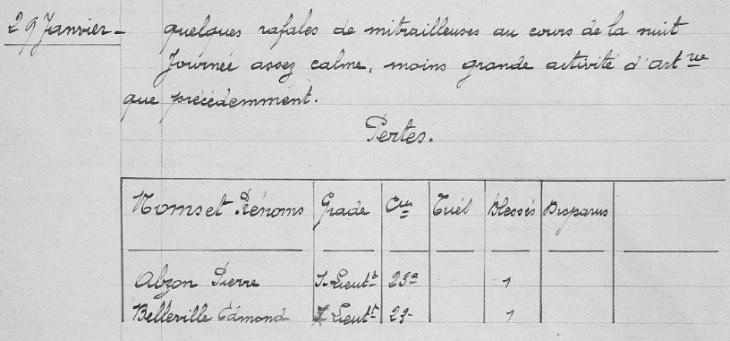 29 Janvier - quelques rafales de mitrailleuses au cours de la nuit
Journée assez calme, moins grande activité d'artie
que précédemment.
Pertes.
Noms et Prénoms Grade Cie Tués Blessés Disparus
Abzon Pierre S-Lieutt 23e 1
Belleville Edmond Lieutt 23- 1